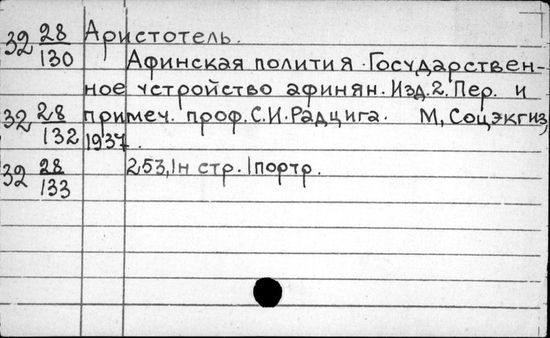 32 28/130 Аристотель.
Афинская полития. Государствен-
ное устройство афинян. Изд. 2. Пер. и
32 28/132 примеч. проф. С.И. Радцига. М, Соцэкгиз,
1937.
32 28/133 253, 1н стр. 1 портр.